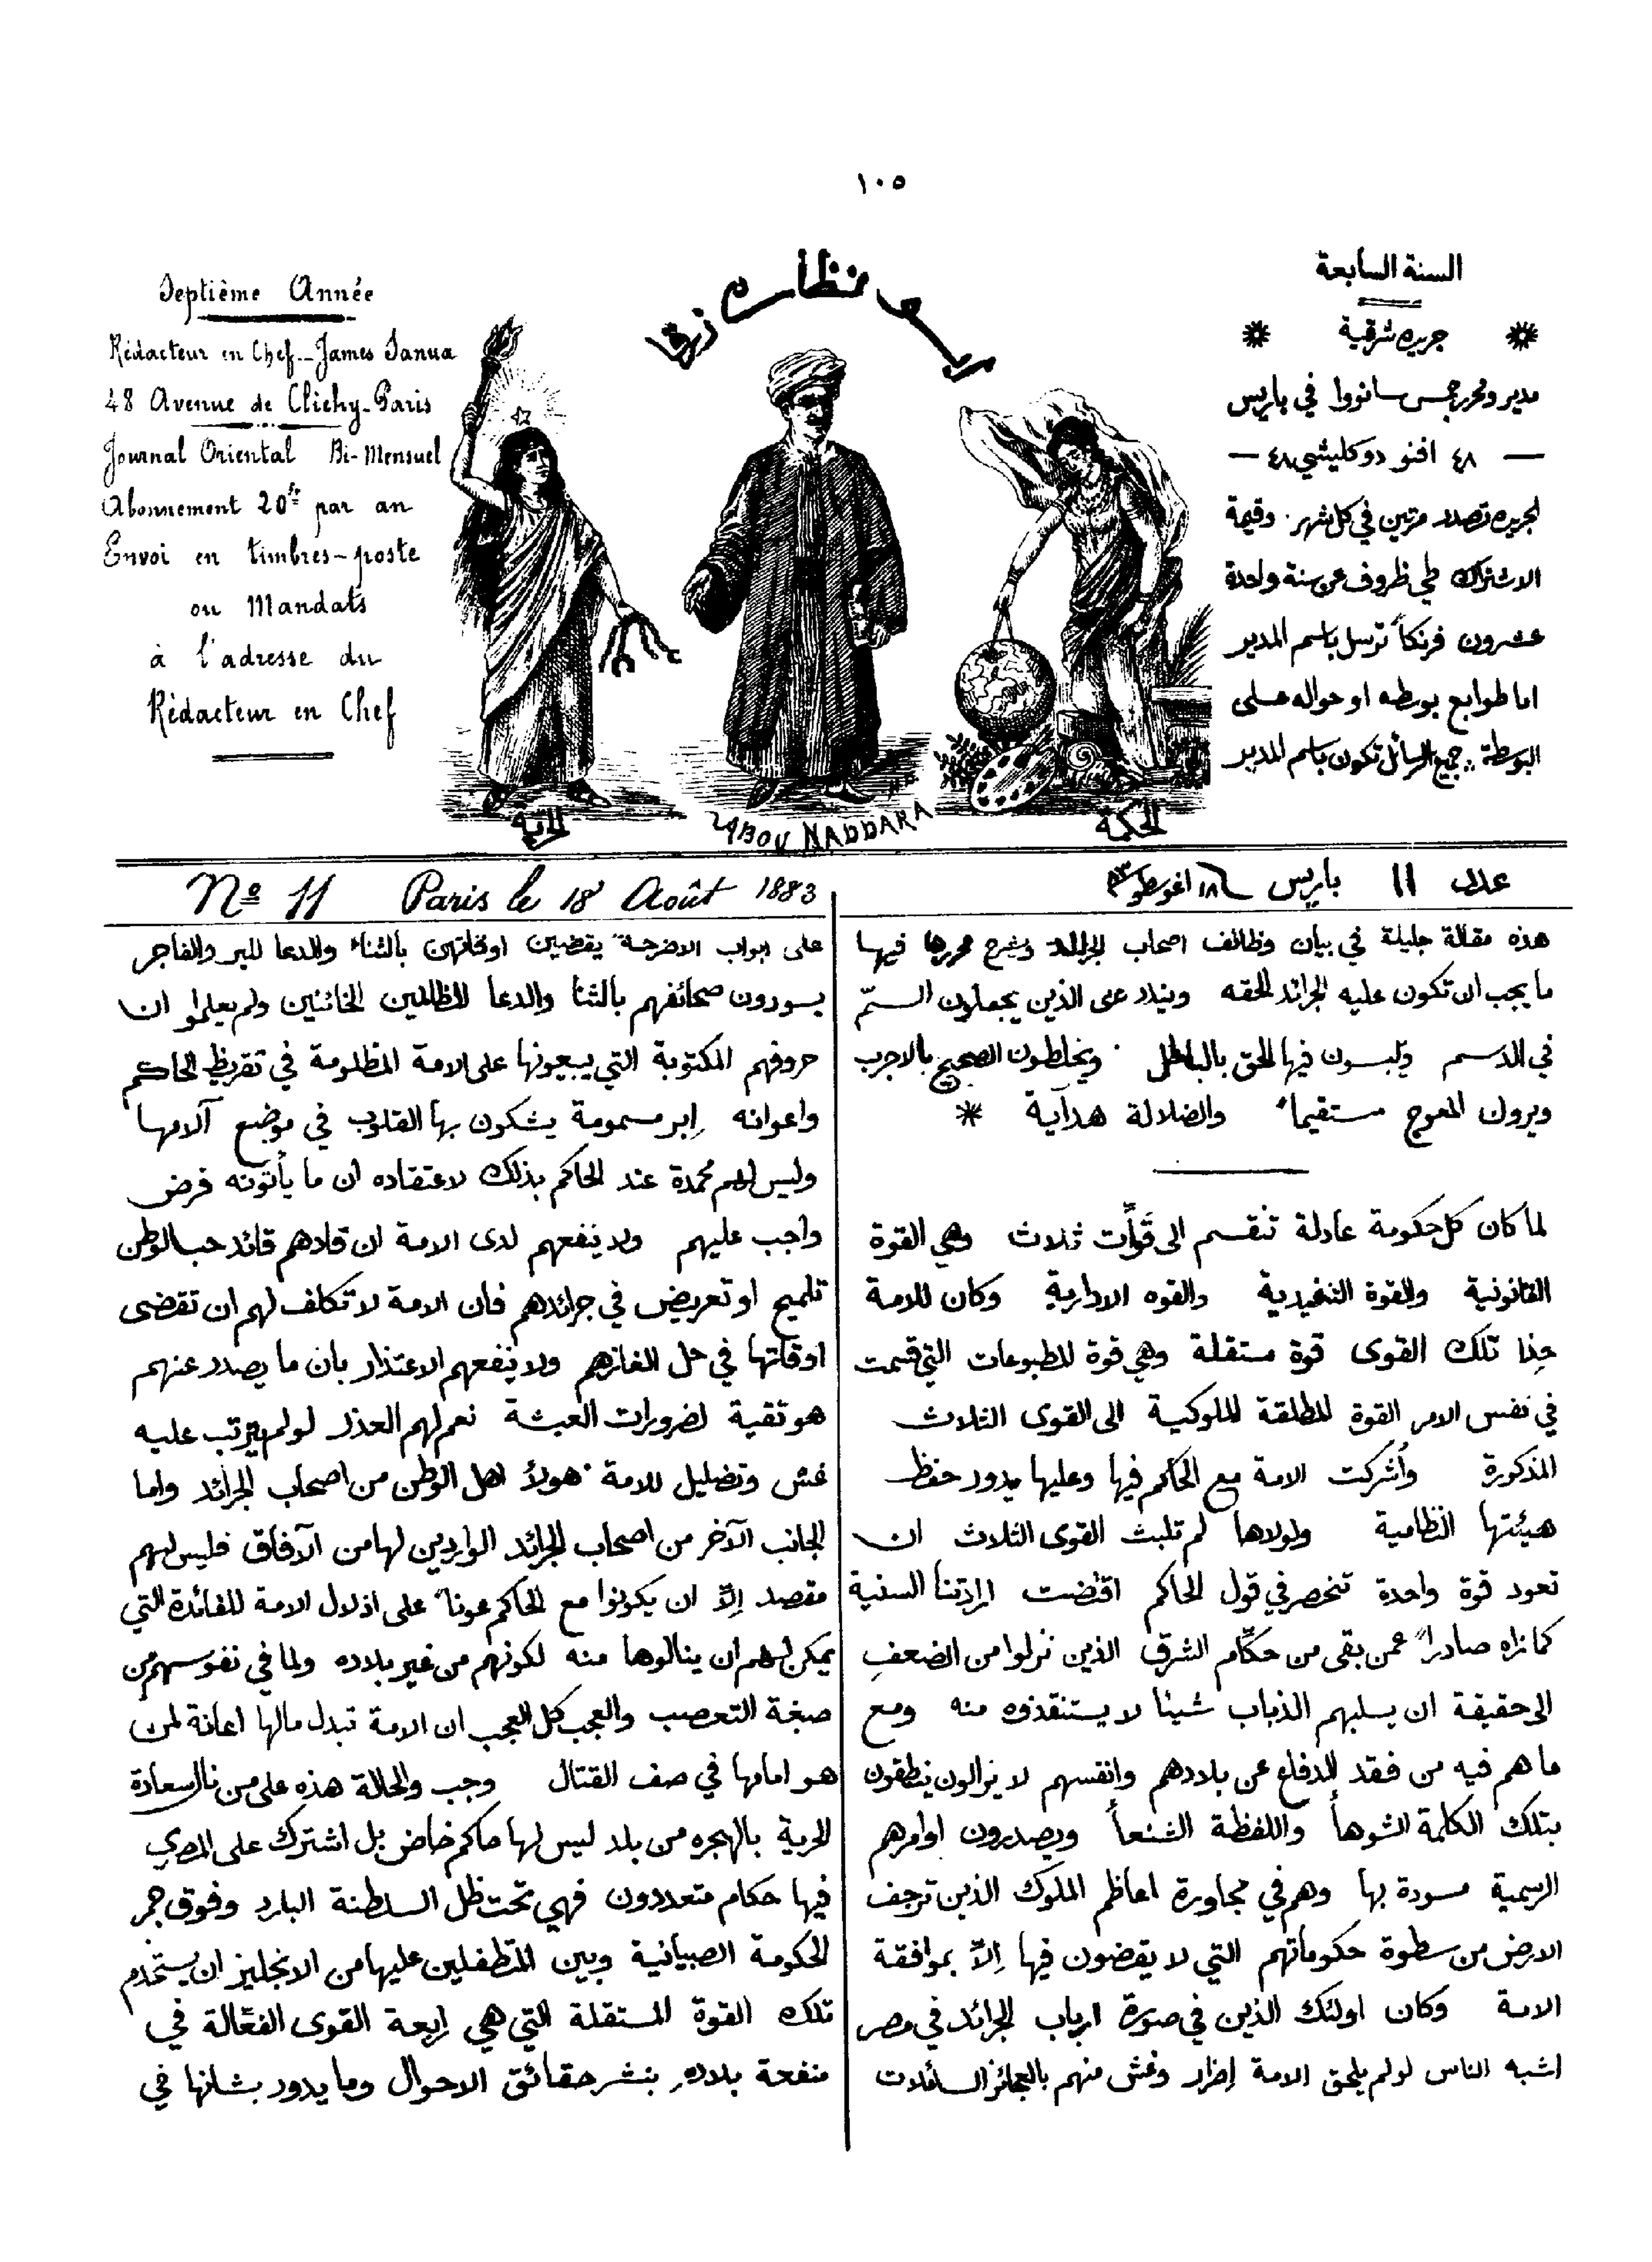 ١٠٥
السنة السابعة
جريده شرقية
مدير ومحرر جمس سانووا في باريس
— ٤٨ افنو دوكليشي ٤٨ —
الجريده تصدر مرتين في كل شهر . وقيمة
الاشتراك طي ظروف عن سنة واحدة
عشرون فرنكاً ترسل باسم المدير
اما طوابع بوسطه او حواله على
البوسطة .. جميع الرسائل تكون باسم المدير
نظاره زرقا
الحرية
ABOU NADDARA
الحكمة
Septième Année
Rédacteur en Chef - James Sanua
48 Avenue de Clichy - Paris
Journal Oriental Bi-Mensuel
Abonnement 20fr par an
Envoi en timbres-poste
ou Mandats
à l'adresse du
Rédacteur en Chef
عدد ١١ باريس ١٨ اغوسطوس
Nº 11 Paris le 18 Août 1883
هذه مقالة جليلة في بيان وظائف اصحاب الجرائد ويشرح محررها فيها
ما يجب ان تكون عليه الجرائد الحقه ويندد على الذين يجعلون السمّ
في الدسم ويلبسون فيها الحق بالباطل . ويخلطون الصحيح بالاجرب
ويرون المعوج مستقيماً والضلالة هداية *
لما كان كل حكومة عادلة تنقسم الى قوات ثلاث وهي القوة
القانونية والقوة التنفيدية والقوه الادارية وكان للامة
حذا تلك القوى قوة مستقلة وهي قوة المطبوعات التي قسمت
في نفس الامر القوة المطلقة الملوكية الى القوى الثلاث
المذكورة وأشركت الامة مع الحاكم فيها وعليها يدور حفظ
هيئتها النظامية ولولاها لم تلبث القوى الثلاث ان
تعود قوة واحدة تنحصر في قول الحاكم اقتضت ارادتنا السنية
كما نراه صادراً عمن بقى من حكّام الشرق الذين نزلوا من الضعف
الى حقيقة ان يسلبهم الذباب شيئا لا يستنقذوه منه ومع
ما هم فيه من فقد الدفاع عن بلادهم وانفسهم لا يزالون ينطقون
بتلك الكلمة الشوهأ واللفظة الشنعأ ويصدرون اوامرهم
الرسمية مسودة بها وهم في مجاورة اعاظم الملوك الذين ترجف
الارض من سطوة حكوماتهم التي لا يقضون فيها إلاّ بموافقة
الامة وكان اولئك الذين في صورة ارباب الجرائد في مصر
اشبه الناس لو لم يلحق الامة إضرار وغش منهم بالعجائز السائلات
على ابواب الاضرحة يقضين اوقاتهن بالثناء والدعا للبر والفاجر
يسودون صحائفهم بالثنا والدعا للظالمين الخائنين ولم يعلموا ان
حروفهم المكتوبة التي يبيعونها على الامة المظلومة في تقريظ الحاكم
واعوانه إبر مسمومة يشكون بها القلوب في موضع آلامها
وليس لهم محمدة عند الحاكم بذلك لاعتقاده ان ما يأتونه فرض
واجب عليهم ولا ينفعهم لدى الامة ان قادهم قائد حب الوطن
تلميح او تعريض في جرائدهم فان الامة لا تكلف لهم ان تقضى
اوقاتها في حل الغازهم ولا ينفعهم الاعتذار بان ما يصدر عنهم
هو تقية لضرورات العيشة نعم لهم العذر لو لم يترتب عليه
غش وتضليل للامة . هولأ اهل الوطن من اصحاب الجرائد واما
الجانب الآخر من اصحاب الجرائد الواردين لها من الآفاق فليس لهم
مقصد إلاّ ان يكونوا مع الحاكم عوناً على اذلال الامة للفائدة التي
يمكن لهم ان ينالوها منه لكونهم من غير بلاده ولما في نفوسهم من
صبغة التعصب والعجب كل العجب ان الامة تبدل مالها اعانة لمن
هو امامها في صف القتال وجب والحالة هذه على من نال سعادة
الحرية بالهجره من بلد ليس لها حاكم خاض بل اشترك على المصري
فيها حكام متعددون فهي تحت ظل السلطنة البارد وفوق جمر
الحكومة الصبيانية وبين المتطفلين عليها من الانجليز ان يستخدم
تلك القوة المستقلة التي هي رابعة القوى الفعّالة في
منفحة بلاده بنشر حقائق الاحوال وما يدور بشانها في